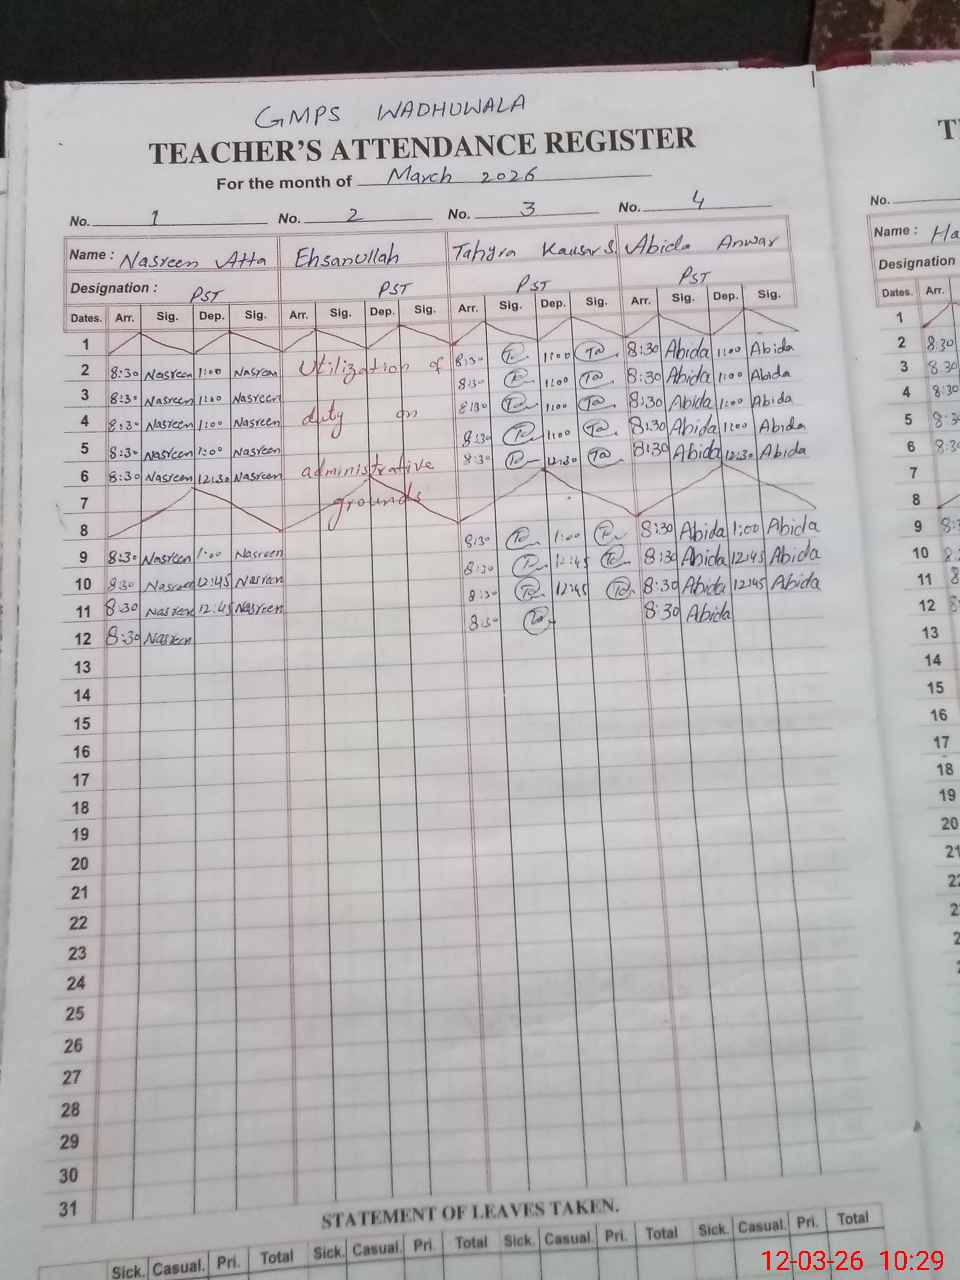 GMPS WADHUWALA
TEACHER'S ATTENDANCE REGISTER
For the month of March 2026
No. 1 No. 2 No. 3 No. 4 No.
Name : Nasreen Atta Ehsanullah Tahyra Kausar S Abida Anwar Name : Ha
Designation : PST PST PST PST Designation
Dates. Arr. Sig. Dep. Sig. Arr. Sig. Dep. Sig. Arr. Sig. Dep. Sig. Arr. Sig. Dep. Sig. Dates. Arr.
1 1
2 8:30 Nasreen 1:00 Nasreen Utilization of 8:30 1:00 8:30 Abida 1:00 Abida 2 8:30
3 8:30 Nasreen 1:00 Nasreen 8:30 1:00 8:30 Abida 1:00 Abida 3 8:30
4 8:30 Nasreen 1:00 Nasreen duty on 8:30 1:00 8:30 Abida 1:00 Abida 4 8:30
5 8:30 Nasreen 1:00 Nasreen 8:30 1:00 8:30 Abida 1:00 Abida 5 8:3
6 8:30 Nasreen 12:30 Nasreen administrative 8:30 12:30 8:30 Abida 12:30 Abida 6 8:30
7 grounds 7
8 8
9 8:30 Nasreen 1:00 Nasreen 8:30 1:00 8:30 Abida 1:00 Abida 9 8:3
10 8:30 Nasreen 12:45 Nasreen 8:30 12:45 8:30 Abida 12:45 Abida 10 8:
11 8:30 Nasreen 12:45 Nasreen 8:30 12:45 8:30 Abida 12:45 Abida 11 8
12 8:30 Nasreen 8:30 8:30 Abida 12 8
13 13
14 14
15 15
16 16
17 17
18 18
19 19
20 20
21 21
22
23
24
25
26
27
28
29
30
31
STATEMENT OF LEAVES TAKEN.
Sick. Casual. Pri. Total Sick. Casual. Pri. Total Sick. Casual Pri. Total Sick. Casual. Pri. Total
12-03-26 10:29